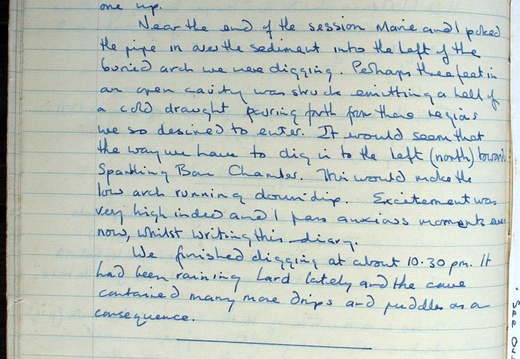 one up.
Near the end of the session Marie and I poked
the pipe in over the sediment into the left of the
buried arch we were digging. Perhaps three feet in
an open cavity was struck emitting a hell of
a cold draught pouring forth from those regions
we so desired to enter. It would seem that
the way we have to dig in to the left (north) towards
Chamber. This would make the
low arch running down dip. Excitement was
very high indeed and I pass anxious moments even
now, whilst writing this diary.
We finished digging at about 10:30 pm. It
had been raining hard lately and the cave
contained many more drips and puddles as a
consequence.